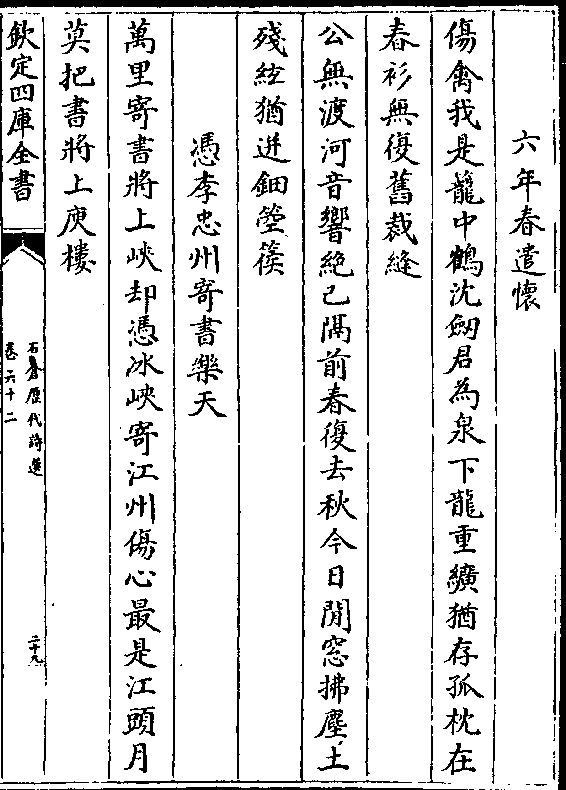 六年春遣懷
傷禽我是籠中鶴沈劔君為泉下龍重纊猶存孤枕在
春衫無復舊裁縫
公無渡河音響絶已隔前春復去秋今日閒窓拂塵土
殘絃猶迸鈿箜篌
憑李忠州寄書樂天
萬里寄書將上峽却憑氷峽寄江州傷心最是江頭月
莫把書將上庾樓
欽定四庫全書
石倉歴代詩選
卷六十二
二十九